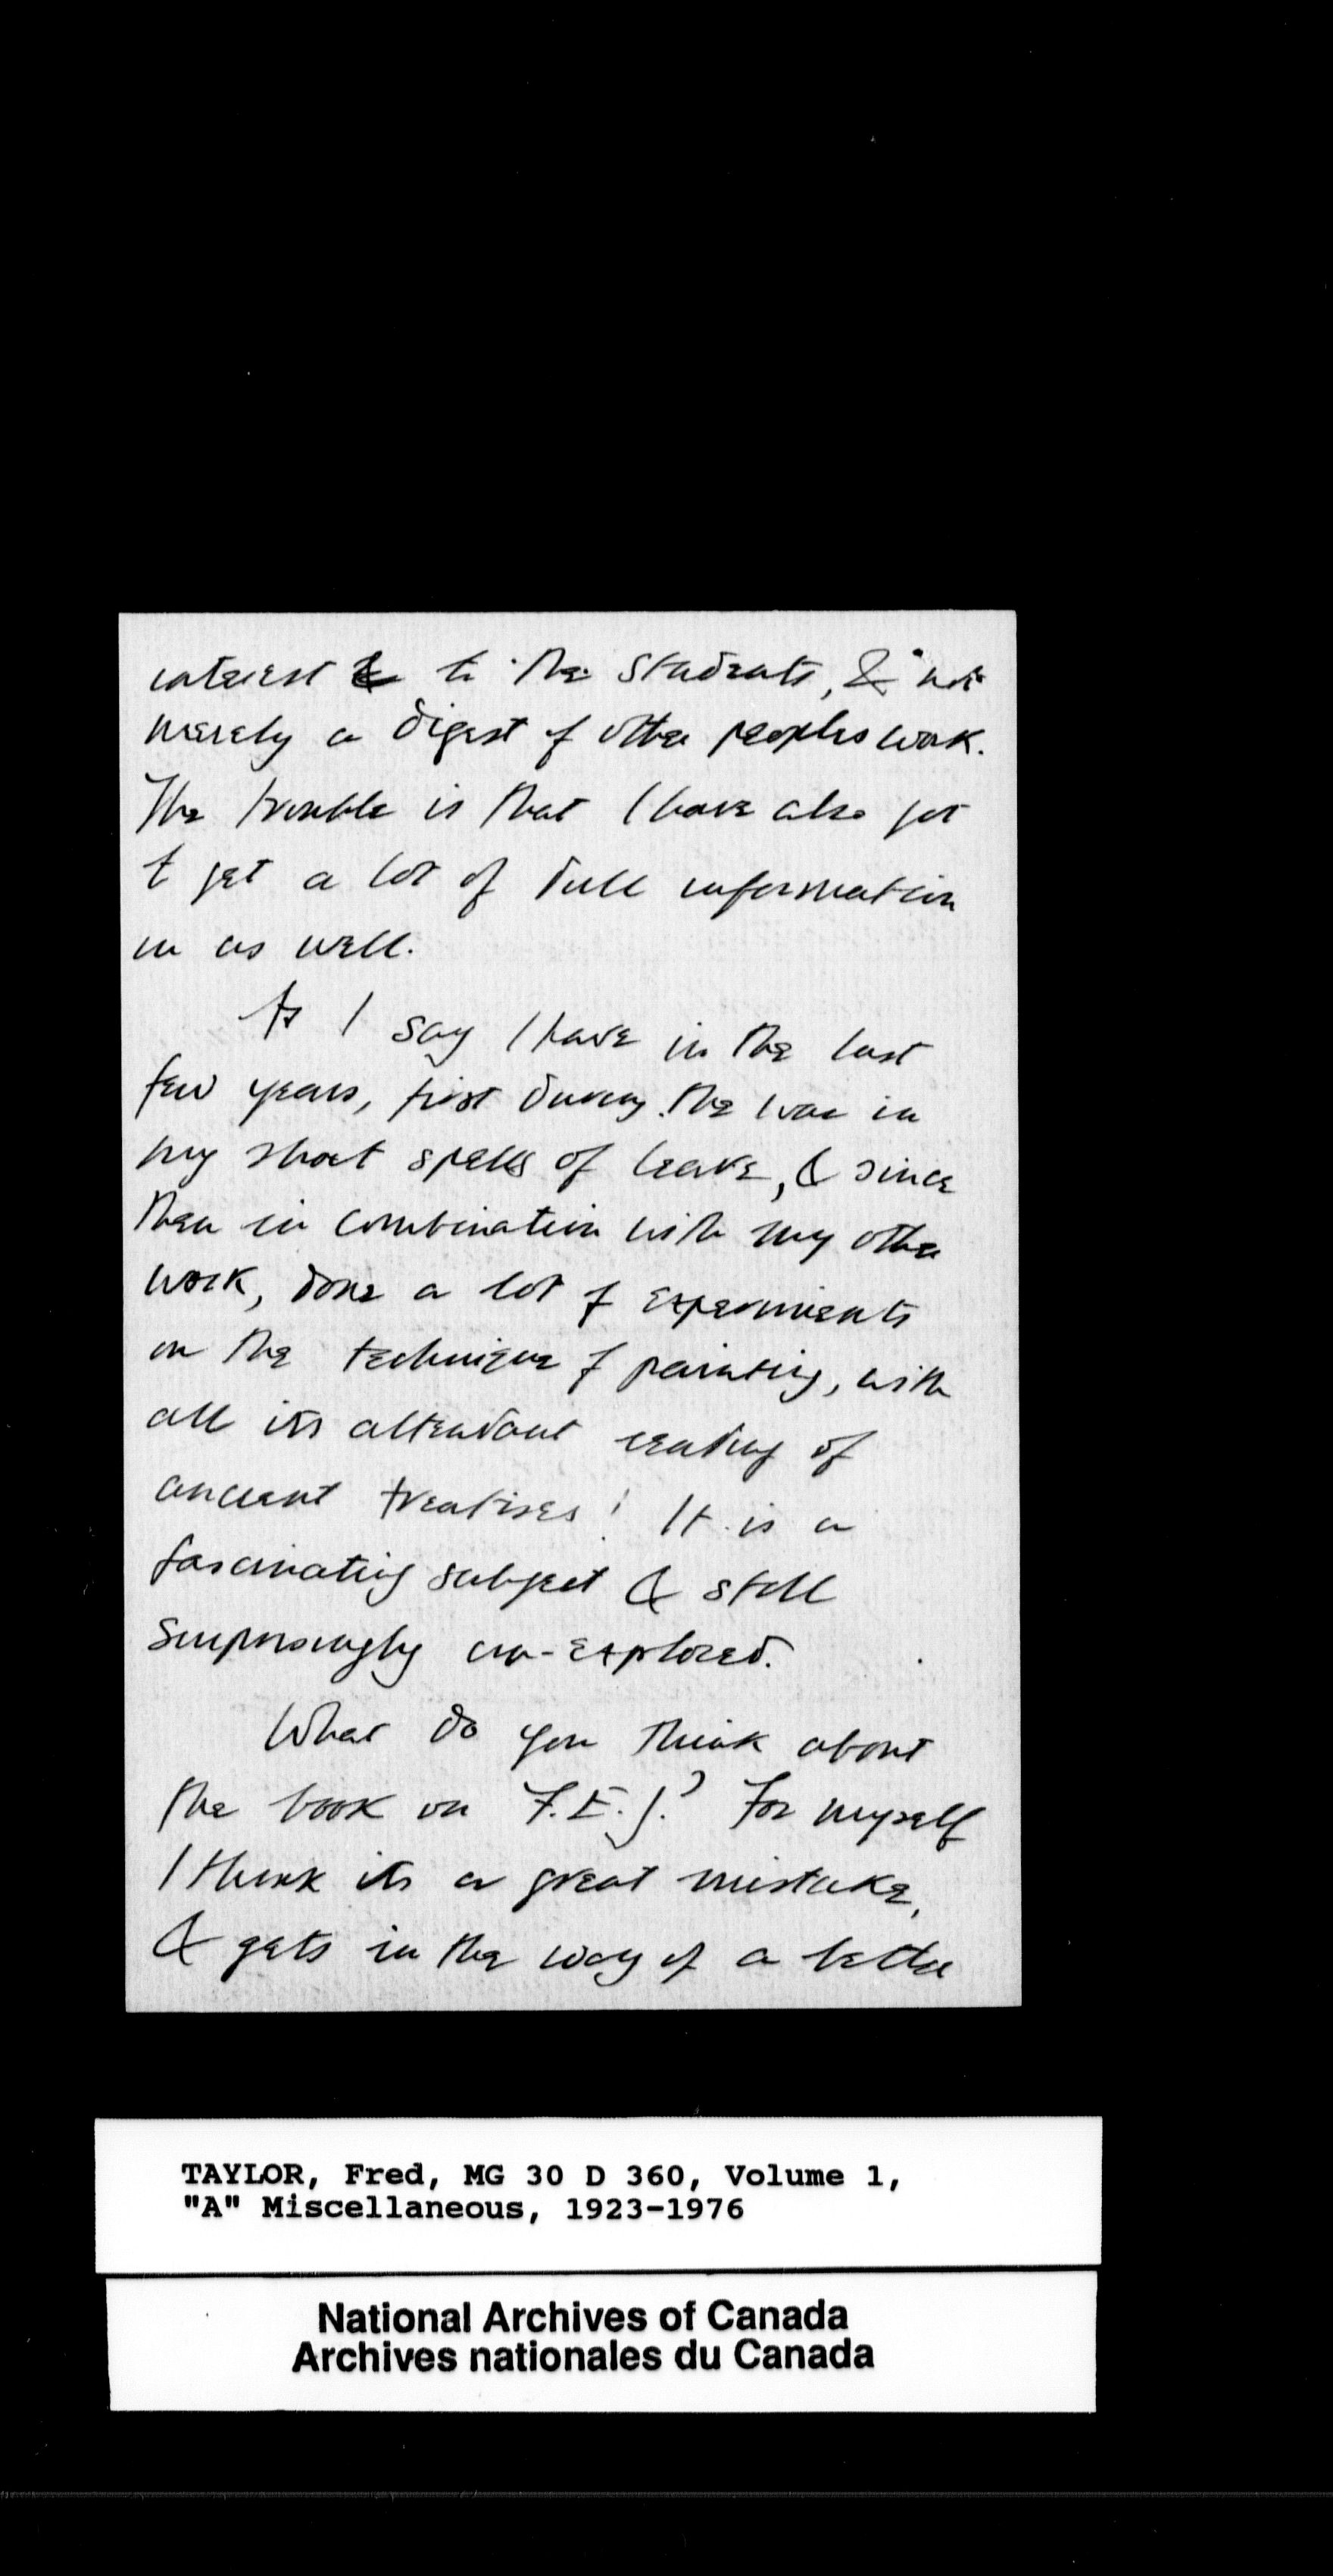 interest to the students, & not
merely a digest of other peoples work.
The trouble is that I have also got
t get a lot of dull information
in as well.
As I say I have in the last
few years, first during the war in
my short spells of leave, & since
then in combination with my other
work, done a lot of experiments
on the technique of painting, with
all its attendant reading of
ancient treatises! It is a
fascinating subject & still
surprisingly un-explored.
What do you think about
the book on F.E.J.? For myself
I think its a great mistake,
& gets in the way of a better
TAYLOR, Fred, MG 30 D 360, Volume 1,
"A" Miscellaneous, 1923-1976
National Archives of Canada
Archives nationales du Canada